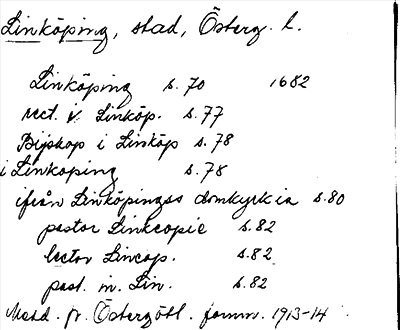 Linköping, stad, Österg. l.
Linköping s. 70 1682
rect. i Linköp. s. 77
Bijskop i Linköp s. 78
i Linkoping s. 78
ifrån Linköpingss domkyrkia s. 80
pastor Linkcopie s. 82
lector Lincop. s. 82
past. in. Lin. s. 82
Medd. fr. Östergötl. fornm. 1913-14